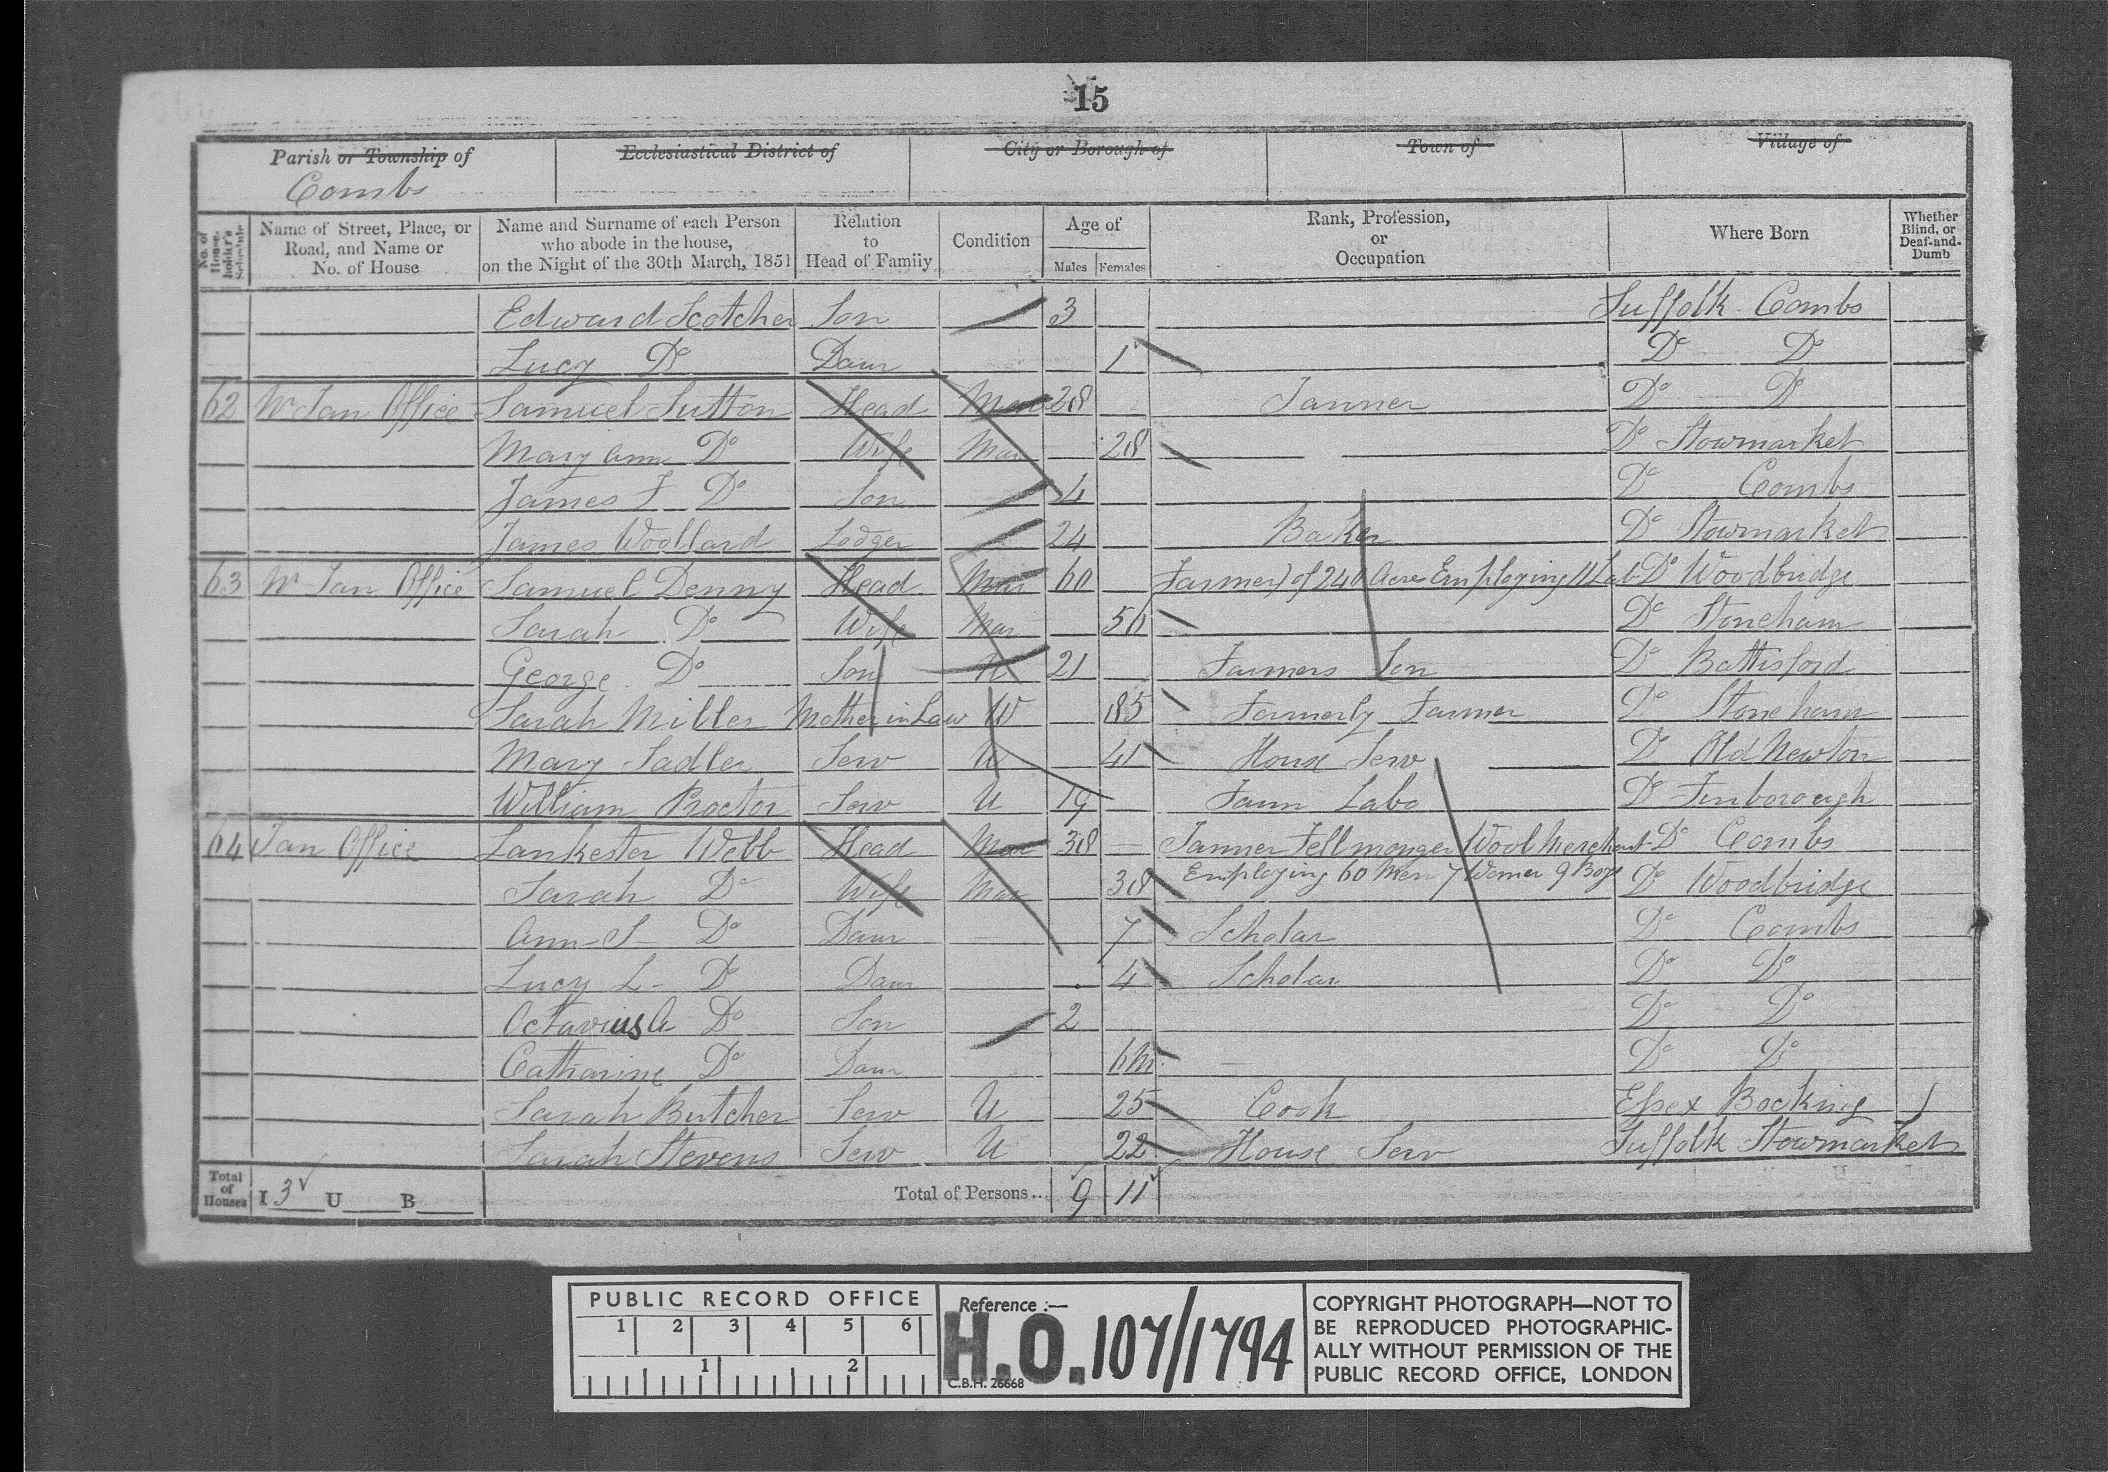 15
Parish or Township of Ecclesiastical District of City or Borough of Town of Village of
Combs
No. of House-holder's Schedule
Name of Street, Place, or Road, and Name or No. of House
Name and Surname of each Person who abode in the house, on the Night of the 30th March, 1851
Relation to Head of Family
Condition
Age of
Males Females
Rank, Profession, or Occupation
Where Born
Whether Blind, or Deaf-and-Dumb
Edward Scotcher Son 3 Suffolk Combs
Lucy Do Daur 1 Do Do
62 Nr Tan Office Samuel Sutton Head Mar 38 Tanner Do Do
Mary Ann Do Wife Mar 28 Do Stowmarket
James F Do Son 4 Do Combs
James Woollard Lodger 24 Baker Do Stowmarket
63 Nr Tan Office Samuel Denny Head Mar 60 Farmer of 240 Acre Employing 11 Lab Do Woodbridge
Sarah Do Wife Mar 50 Do Stoneham
George Do Son U 21 Farmers Son Do Battisford
Sarah Miller Mother in Law W 85 Formerly Farmer Do Stoneham
Mary Sadler Serv U 41 House Serv Do Old Newton
William Proctor Serv U 19 Farm Labo Do Finborough
64 Tan Office Lankester Webb Head Mar 38 Tanner Fellmonger Wool Merchant Do Combs
Sarah Do Wife Mar 38 Employing 60 Men 7 Women 9 Boys Do Woodbridge
Ann S Do Daur 7 Scholar Do Combs
Lucy L Do Daur 4 Scholar Do Do
Octavius A Do Son 2 Do Do
Catharine Do Daur 6m Do Do
Sarah Butcher Serv U 25 Cook Essex Bocking
Sarah Stevens Serv U 22 House Serv Suffolk Stowmarket
Total of Houses I 3 U B Total of Persons.. 9 11
PUBLIC RECORD OFFICE
1 2 3 4 5 6
1 2
Reference :—
H.O. 107/1794
C.B.H. 26668
COPYRIGHT PHOTOGRAPH—NOT TO
BE REPRODUCED PHOTOGRAPHIC-
ALLY WITHOUT PERMISSION OF THE
PUBLIC RECORD OFFICE, LONDON